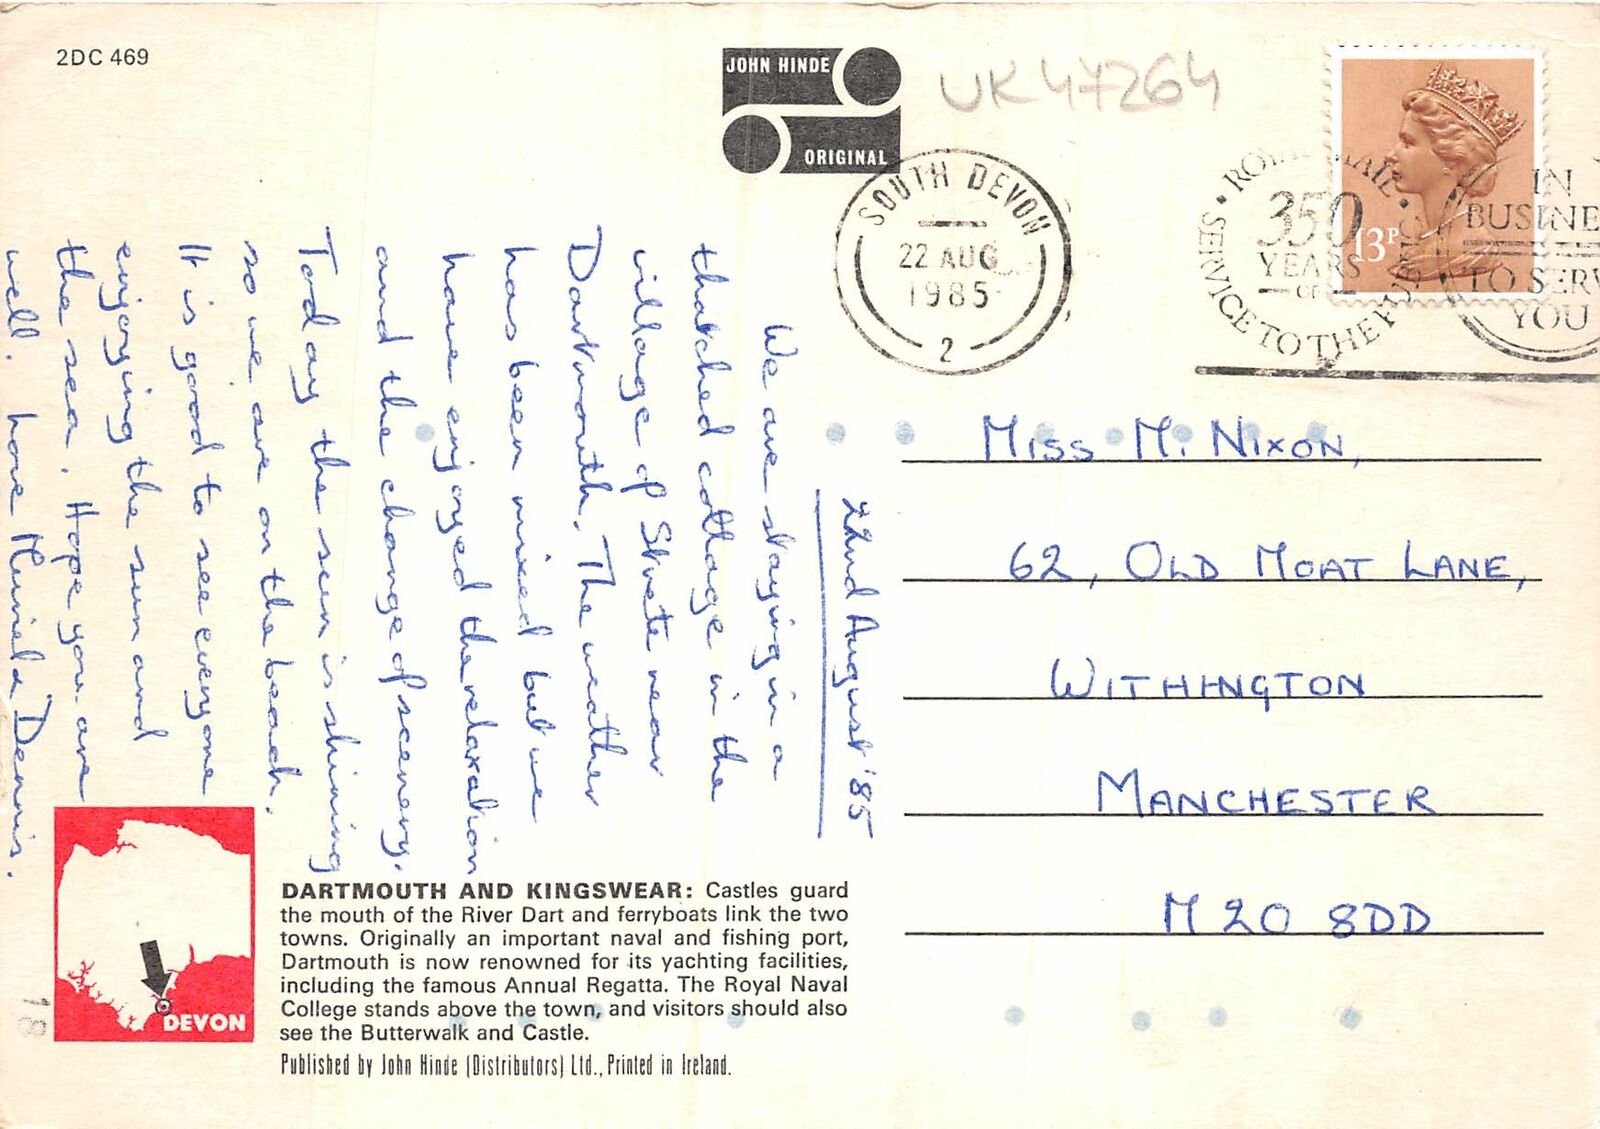 2DC 469
JOHN HINDE
ORIGINAL
UK47264
SOUTH DEVON
22 AUG
1985
2
ROYAL MAIL
350
YEARS
OF
SERVICE TO THE PUBLIC
IN
BUSINE
TO SERV
YOU
13P
22nd August '85
We are staying in a
thatched cottage in the
village of Strete near
Dartmouth. The weather
has been mixed but we
have enjoyed the relaxation
and the change of scenery.
Today the sun is shining
so we are on the beach.
It is good to see everyone
enjoying the sun and
the sea. Hope you are
well. love Muriel & Dennis.
MISS M. NIXON,
62, OLD MOAT LANE,
WITHINGTON
MANCHESTER
M20 8DD
DEVON
18
DARTMOUTH AND KINGSWEAR: Castles guard
the mouth of the River Dart and ferryboats link the two
towns. Originally an important naval and fishing port,
Dartmouth is now renowned for its yachting facilities,
including the famous Annual Regatta. The Royal Naval
College stands above the town, and visitors should also
see the Butterwalk and Castle.
Published by John Hinde (Distributors) Ltd., Printed in Ireland.